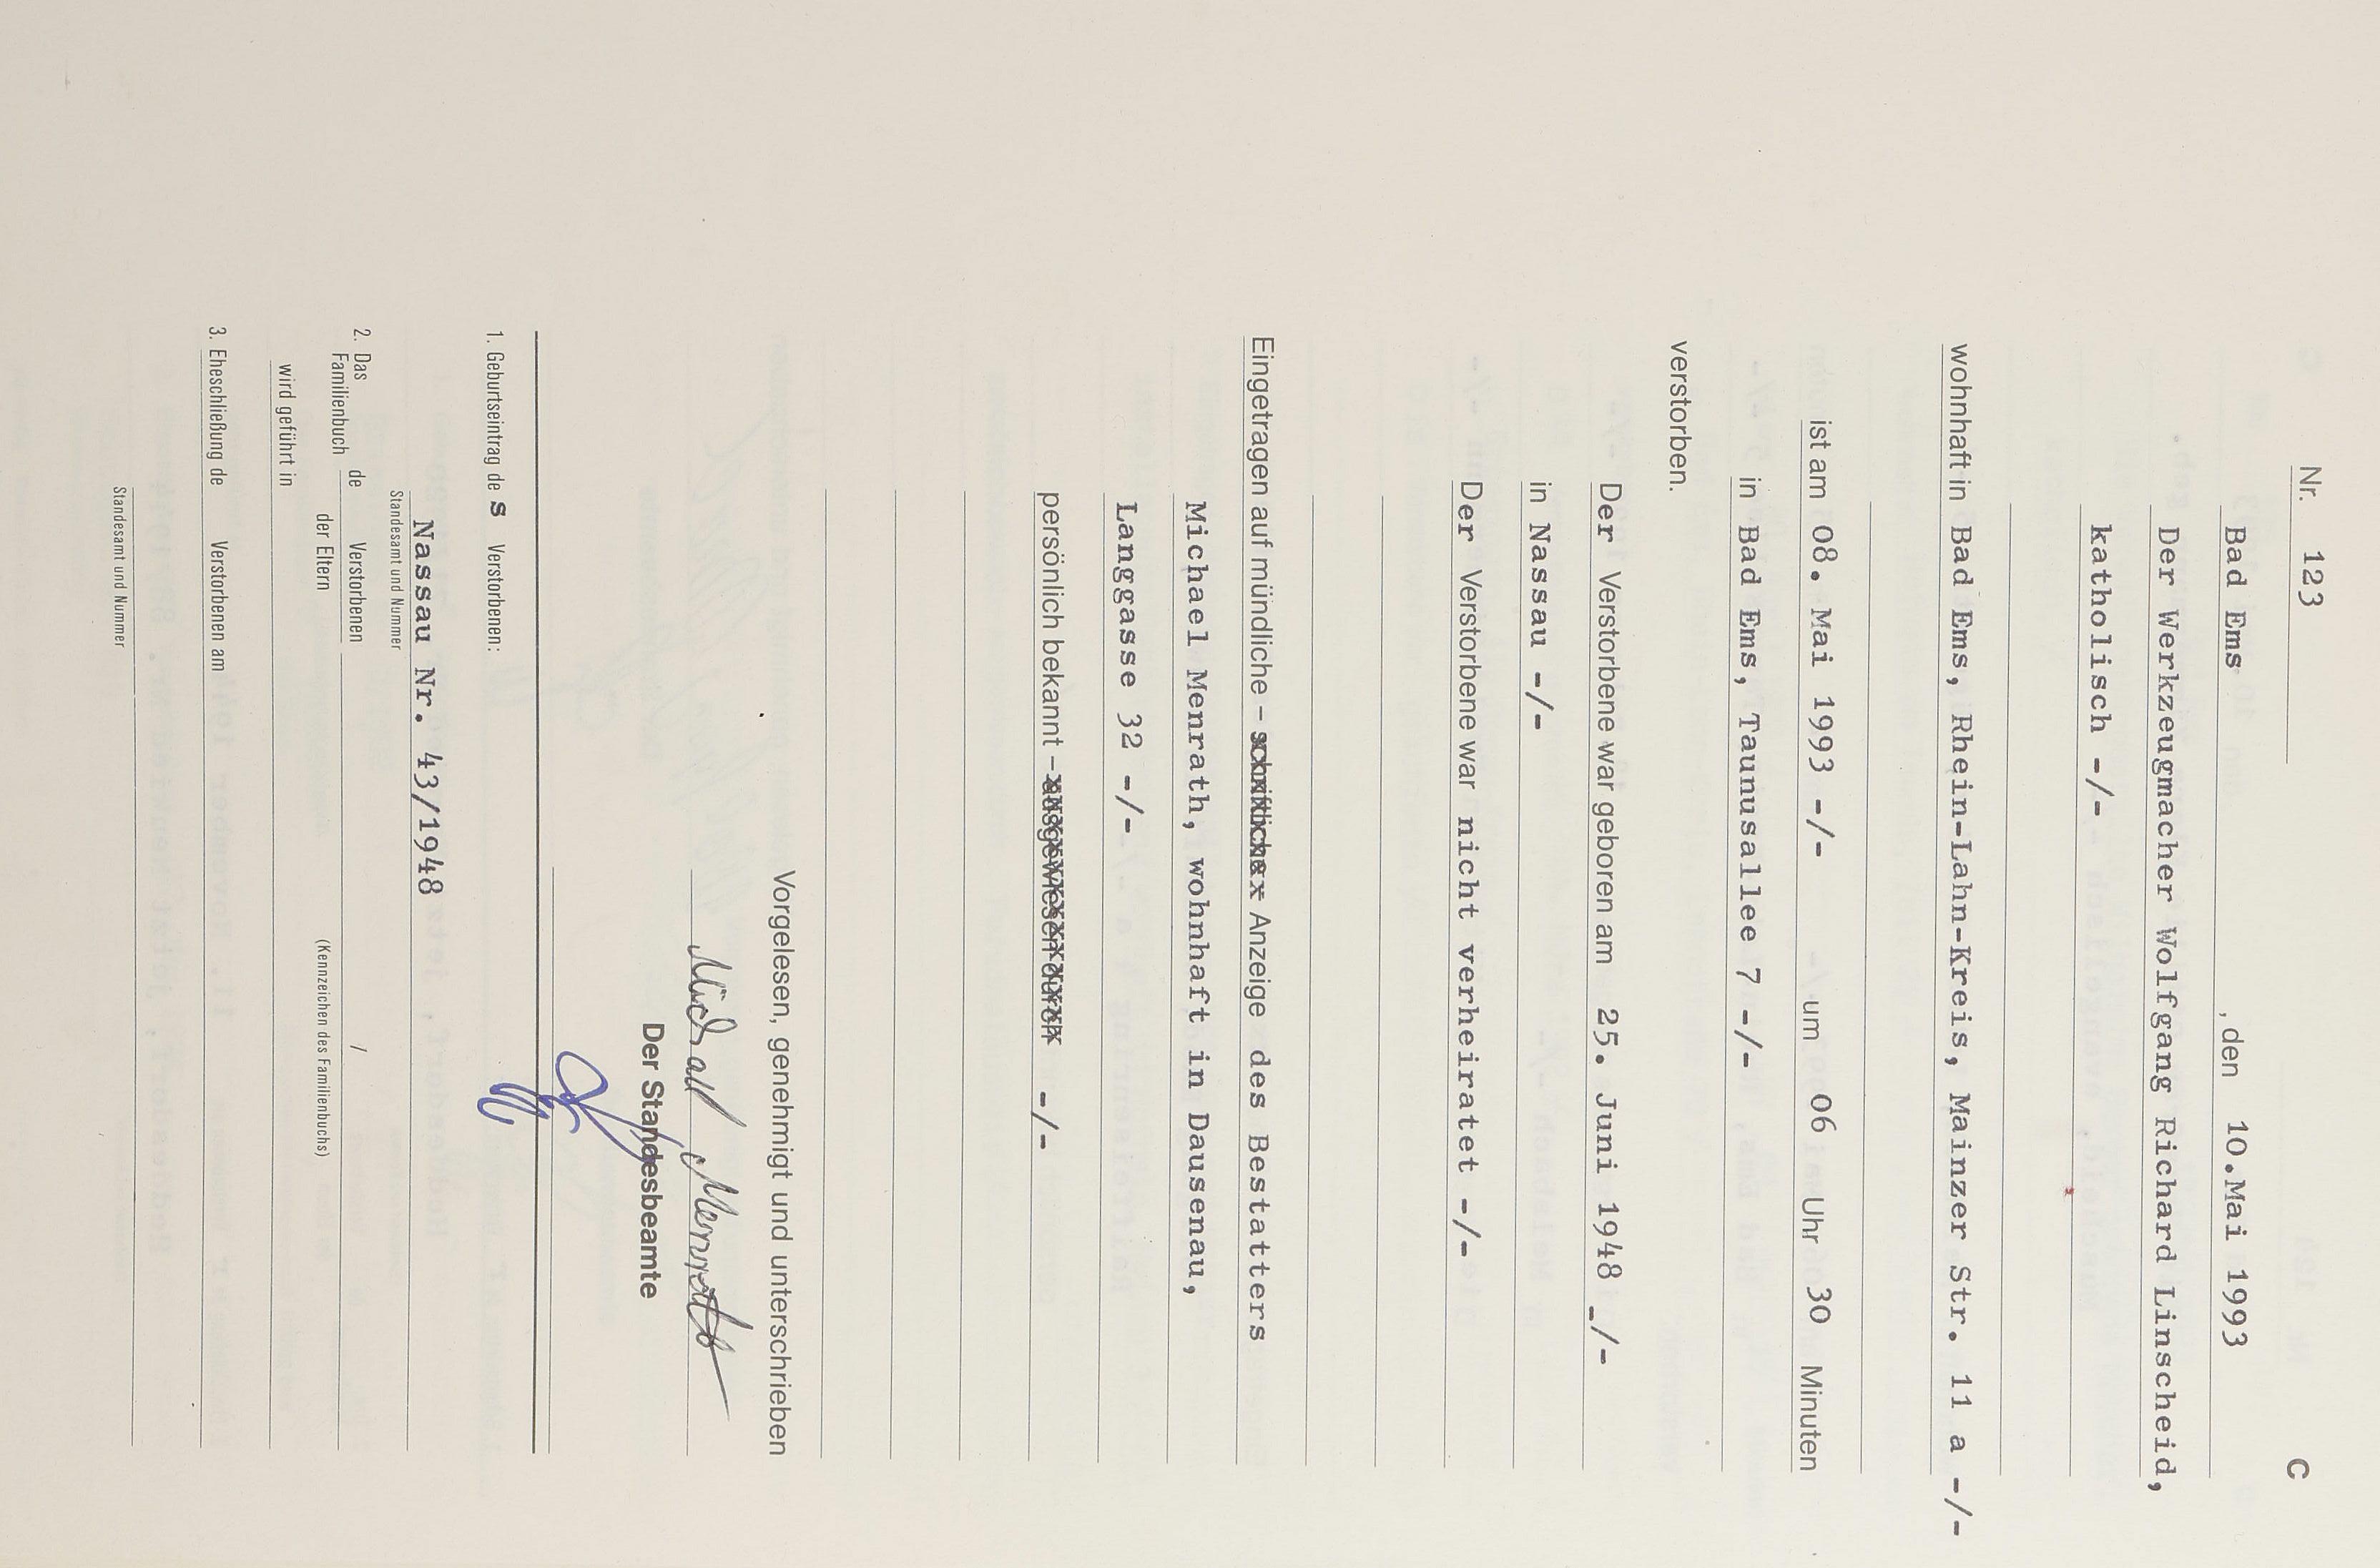 Nr. 123 C
Bad Ems , den 10.Mai 1993
Der Werkzeugmacher Wolfgang Richard Linscheid,
katholisch -/-
wohnhaft in Bad Ems, Rhein-Lahn-Kreis, Mainzer Str. 11 a -/-
ist am 08. Mai 1993 -/- um 06 Uhr 30 Minuten
in Bad Ems, Taunusallee 7 -/-
verstorben.
Der Verstorbene war geboren am 25. Juni 1948 -/-
in Nassau -/-
Der Verstorbene war nicht verheiratet -/-
Eingetragen auf mündliche – schriftliche – Anzeige des Bestatters
Michael Menrath, wohnhaft in Dausenau,
Langgasse 32 -/-
persönlich bekannt – ausgewiesen durch -/-
Vorgelesen, genehmigt und unterschrieben
Michael Menrath
Der Standesbeamte
1. Geburtseintrag de s Verstorbenen:
Nassau Nr. 43/1948
Standesamt und Nummer
2. Das Familienbuch de Verstorbenen /
der Eltern (Kennzeichen des Familienbuchs)
wird geführt in
3. Eheschließung de Verstorbenen am
Standesamt und Nummer